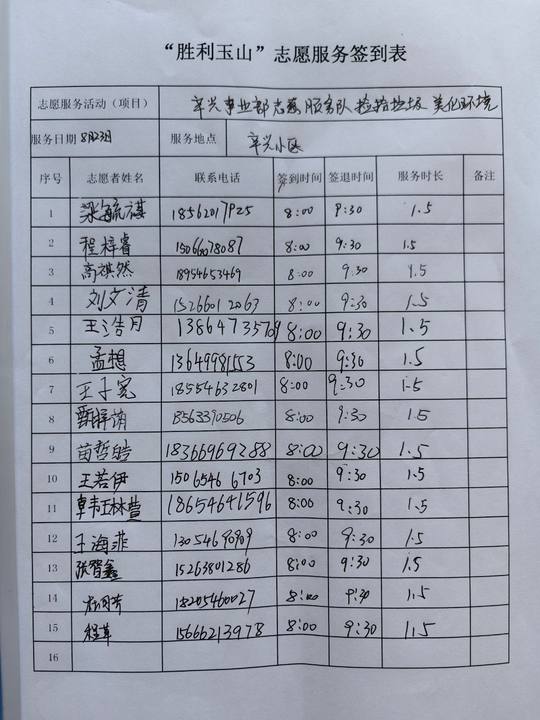 “胜利玉山”志愿服务签到表
志愿服务活动（项目） 辛兴事业部志愿服务队捡拾垃圾 美化环境
服务日期 8月23日 服务地点 辛兴小区
序号 志愿者姓名 联系电话 签到时间 签退时间 服务时长 备注
1 梁毓祺 18562017925 8:00 9:30 1.5
2 程梓睿 15066078087 8:00 9:30 1.5
3 高祺然 18954653469 8:00 9:30 1.5
4 刘文清 15266012063 8:00 9:30 1.5
5 王浩月 13864735709 8:00 9:30 1.5
6 孟想 13649981553 8:00 9:30 1.5
7 王子宽 18554632801 8:00 9:30 1.5
8 8:00 9:30 1.5
9 苗哲皓 18366969288 8:00 9:30 1.5
10 王若伊 15065466703 8:00 9:30 1.5
11 18654641596 8:00 9:30 1.5
12 王海菲 13054690909 8:00 9:30 1.5
13 张智鑫 15263801286 8:00 9:30 1.5
14 18205460027 8:00 9:30 1.5
15 程苹 15666213978 8:00 9:30 1.5
16